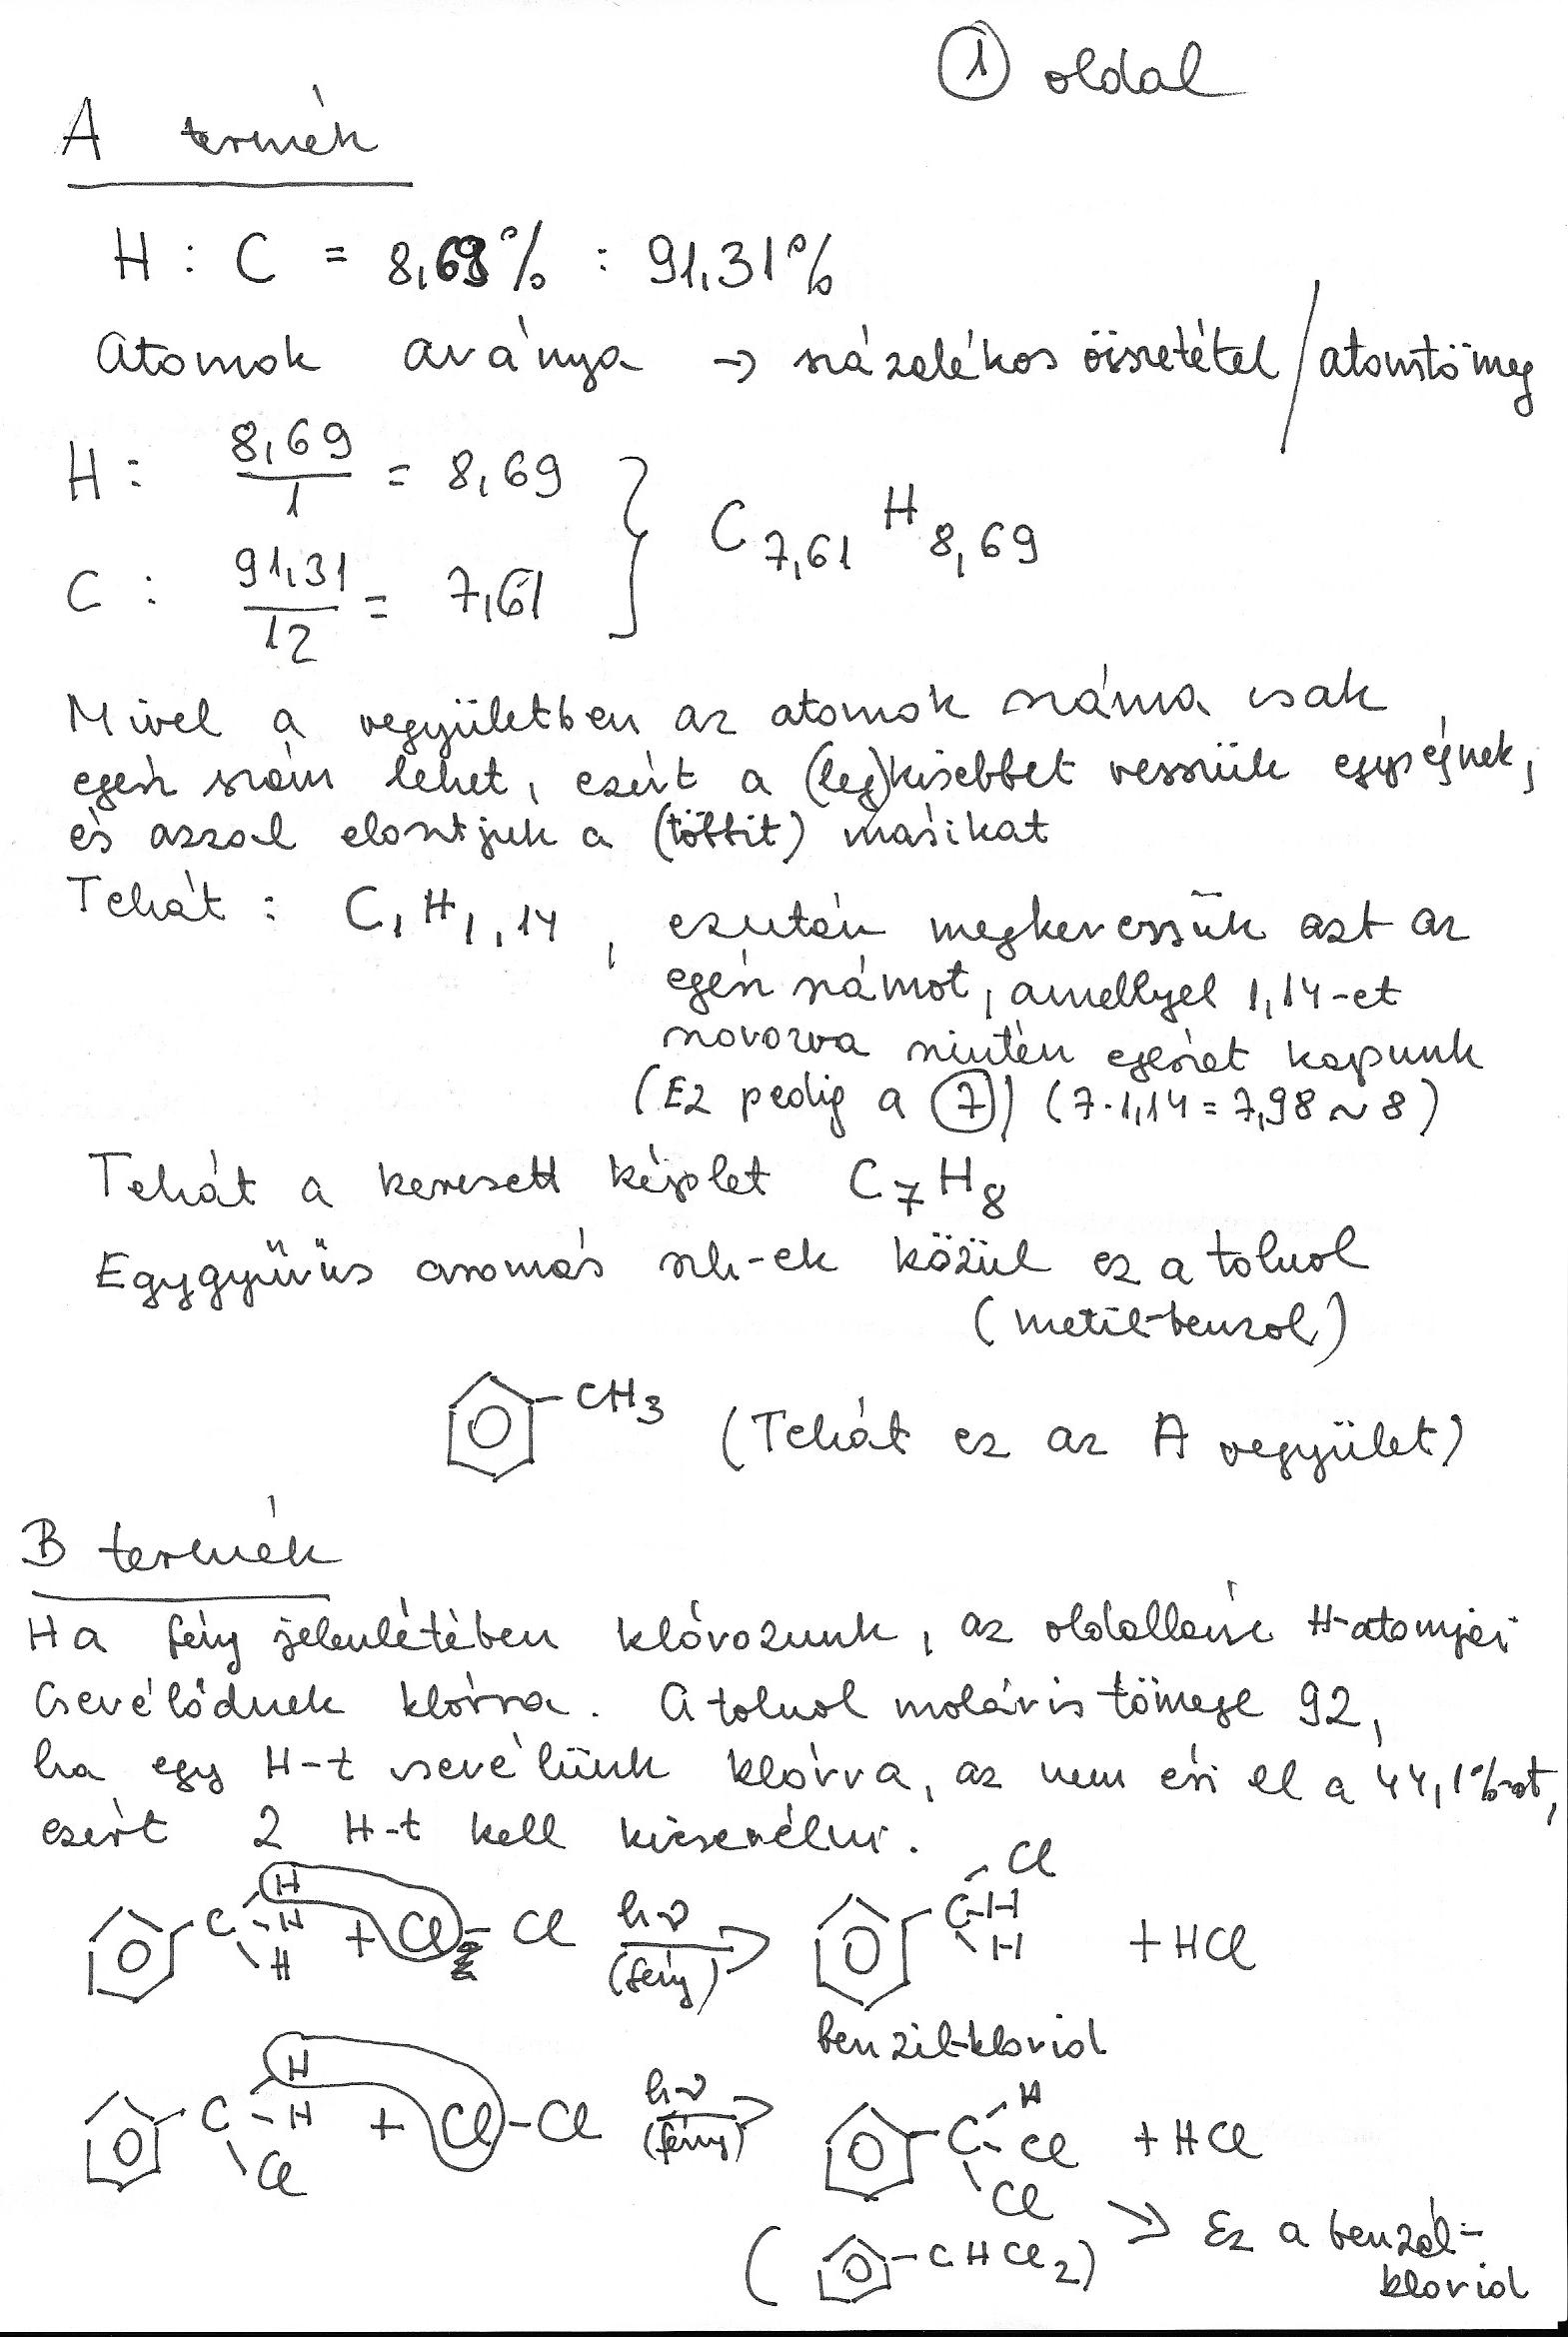 ① oldal
A termék
H : C = 8,69% : 91,31%
Atomok aránya → százalékos összetétel / atomtömeg
H : 8,69 / 1 = 8,69
C : 91,31 / 12 = 7,61
C7,61 H8,69
Mivel a vegyületben az atomok száma csak
egész szám lehet, ezért a (leg)kisebbet vesszük egységnek,
és azzal elosztjuk a (többit) másikat
Tehát : C1 H1,14 , ezután megkeressük azt az
egész számot, amellyel 1,14-et
szorozva szintén egészet kapunk
(Ez pedig a ⑦) (7·1,14 = 7,98 ~ 8)
Tehát a keresett képlet C7H8
Egygyűrűs aromás szh-ek közül ez a toluol
(metil-benzol)
-CH3 (Tehát ez az A vegyület)
B termék
Ha fény jelenlétében klórozunk, az oldallánc H-atomjai
cserélődnek klórra. A toluol moláris tömege 92,
ha egy H-t cserélünk klórra, az nem éri el a 44,1%-ot,
ezért 2 H-t kell kicserélni.
C H H H + Cl - Cl hν (fény) → C Cl H H + HCl
benzil-klorid
C H H Cl + Cl - Cl hν (fény) → C H Cl Cl + HCl
( -CHCl2) ⇒ Ez a benzál-
klorid